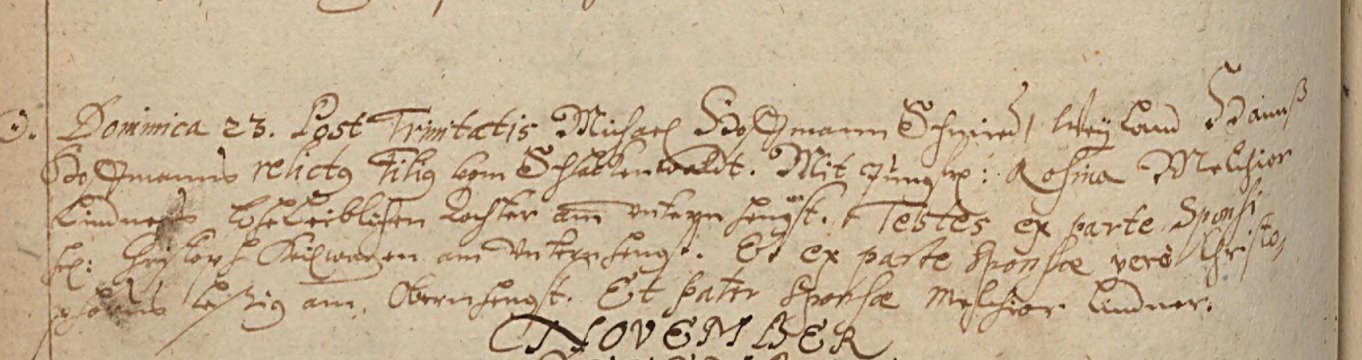 Dominica 23. Post Trinitatis Michael Hoffmann Schmied, weyland Hannß
Hoffmanns relictq Filiq vom Schatzenwaldt. Mit Jungfr: Rosina Melchior
Lindners Eheleiblichen Tochter am Untern hengst. Testes ex parte Sponsi
Christoph am Unternhengst. Et ex parte Sponsæ vero Christo,
phorus am Obernhengst. Et pater Sponsæ Melchior Lindner.
NOVEMBER